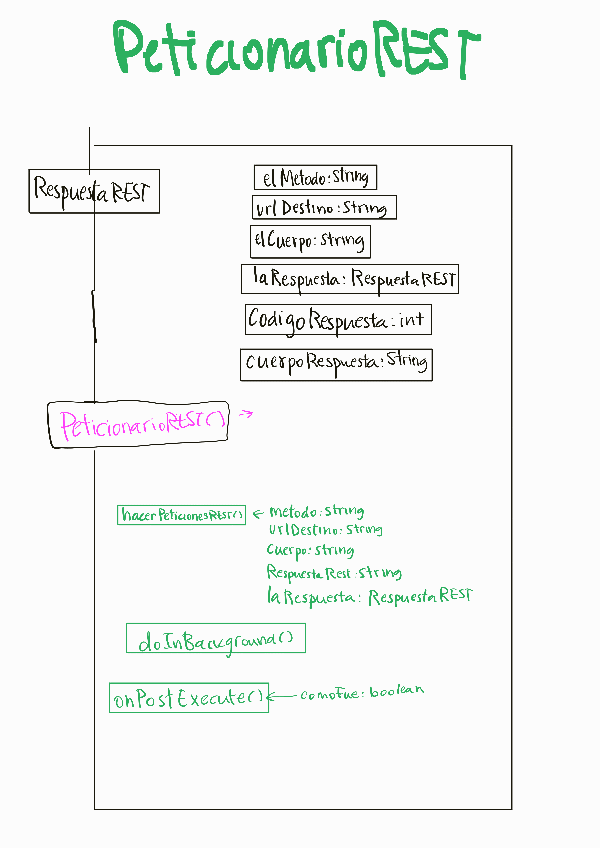 PeticionarioREST
RespuestaREST
elMetodo:String
urlDestino:String
elCuerpo:String
laRespuesta: RespuestaREST
CodigoRespuesta:int
cuerpoRespuesta:String
PeticionarioREST() ->
hacerPeticionesREST() <- metodo:String
urlDestino:String
cuerpo:String
RespuestaRest:String
laRespuesta: RespuestaREST
doInBackground()
onPostExecute() <- comoFue:boolean